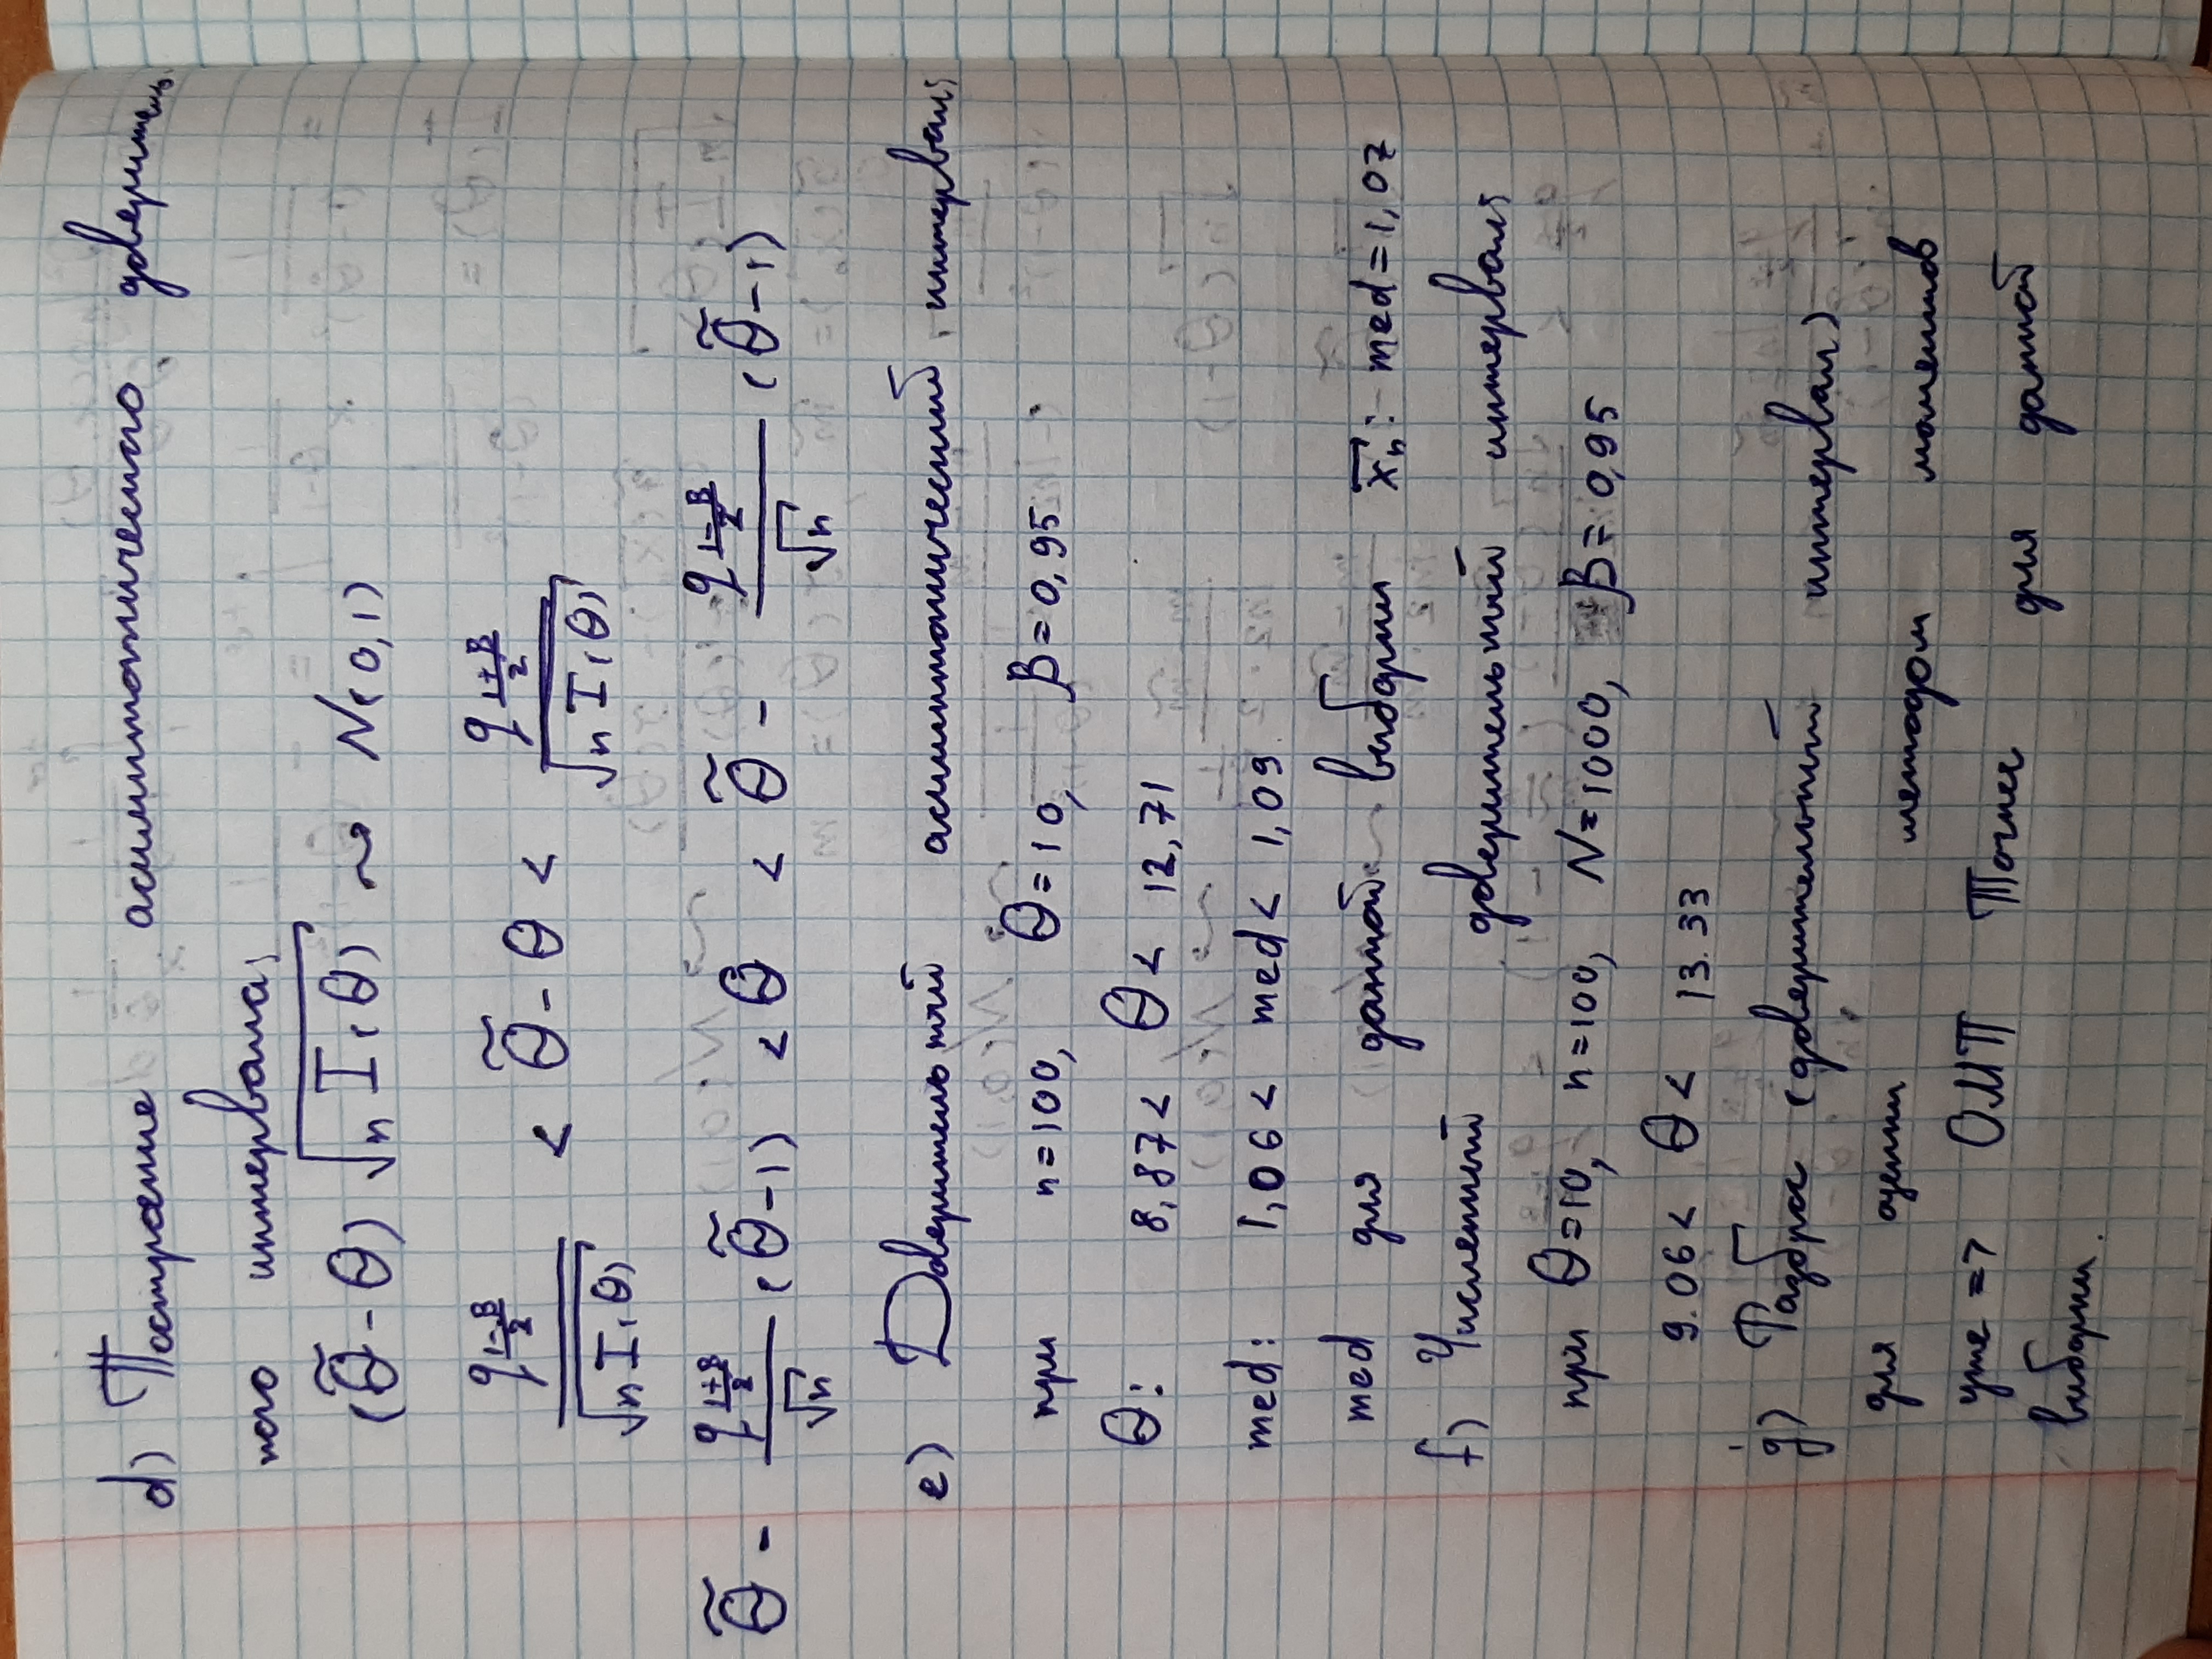 d) Построение асимптотического доверитель-
ного интервала;
(θ̃ - θ) √(n I(θ)) ⇝ N(0,1)
q_{(1-β)/2} / √(n I(θ)) < θ̃ - θ < q_{(1+β)/2} / √(n I(θ))
θ̃ - q_{(1+β)/2} / √n (θ̃ - 1) < θ < θ̃ - q_{(1-β)/2} / √n (θ̃ - 1)
e) Доверительный асимптотический интервал;
при n=100, θ=10, β=0,95
θ: 8,87 < θ < 12,71
med: 1,06 < med < 1,09
med для данной выборки x⃗ₙ: med=1,07
f) Численный доверительный интервал;
при θ=10, n=100, N=1000, β=0,95
9.06 < θ < 13.33
g) Разброс (доверительный интервал)
для оценки методом моментов
уже => ОМП Точнее для данной
выборки.